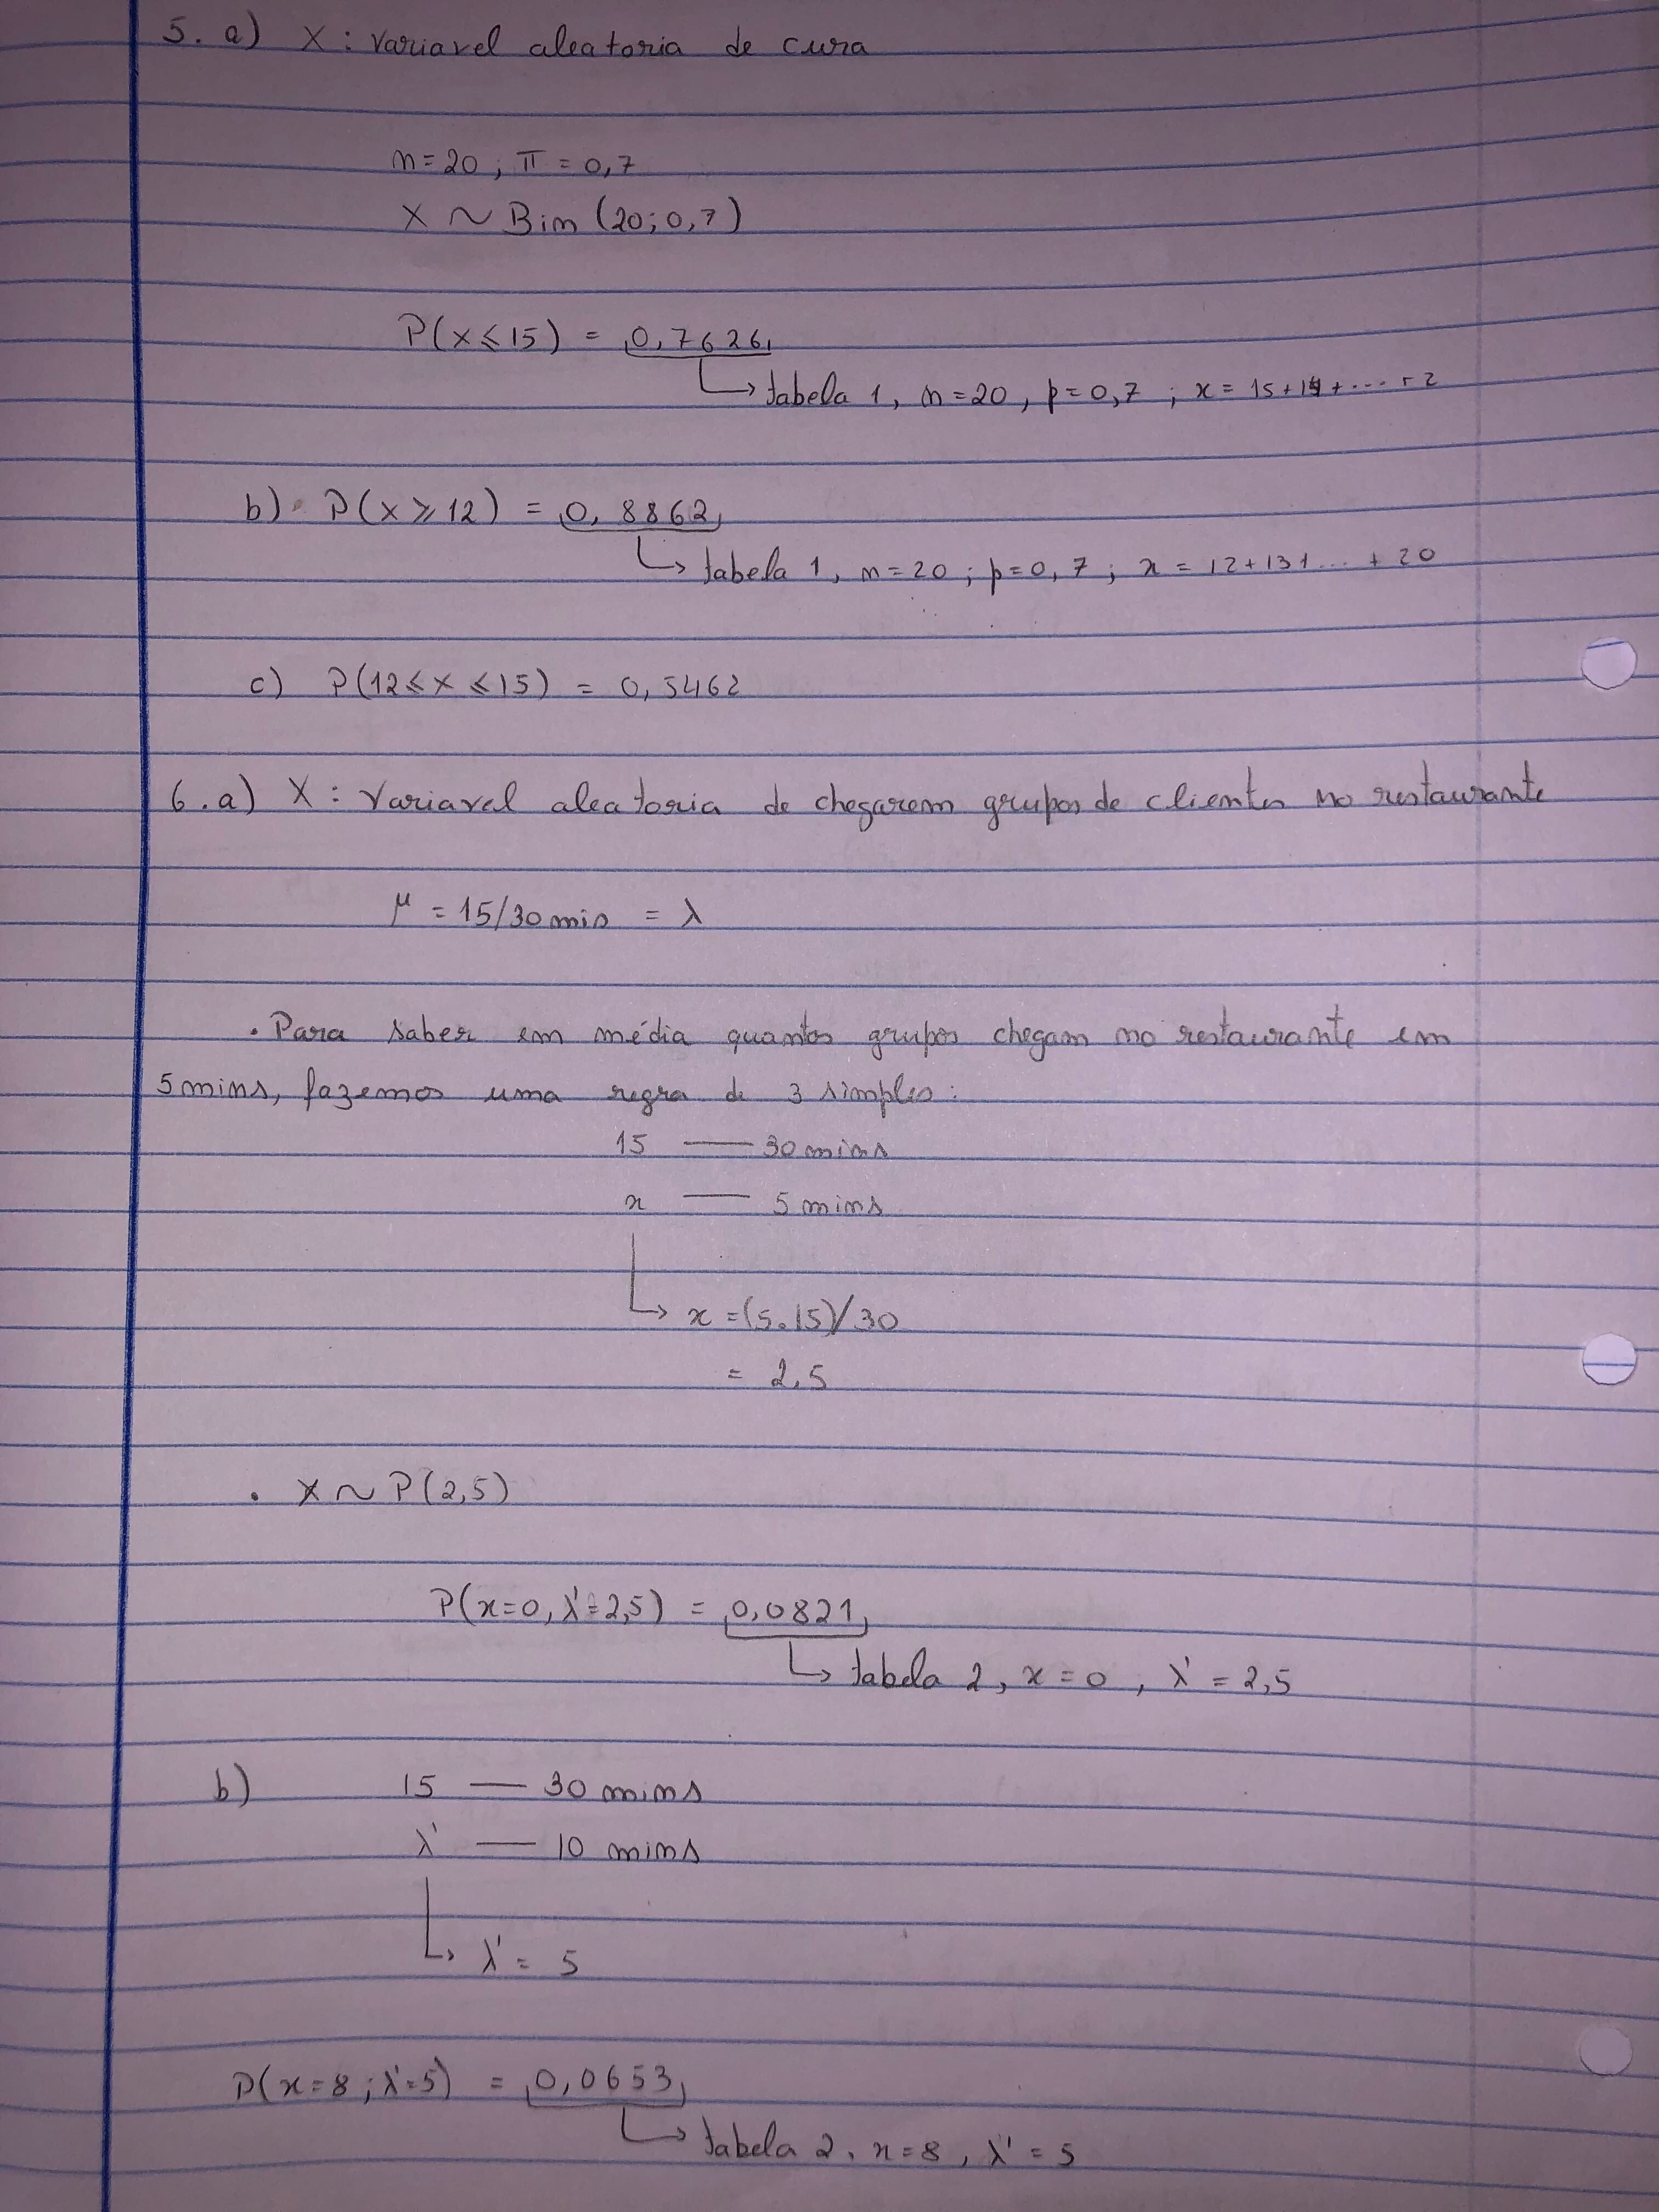 5. a) X : Variavel aleatoria de cura
n=20 ; π = 0,7
X ~ Bin (20; 0,7)
P(x ⩽ 15) = 0,7626
↳ tabela 1, n=20, p=0,7 ; x = 15+14+...+2
b) P(x ⩾ 12) = 0,8862
↳ tabela 1, n=20 ; p=0,7 ; x = 12+13+...+20
c) P(12 ⩽ x ⩽ 15) = 0,5462
6. a) X : Variavel aleatoria de chegarem grupos de clientes no restaurante
μ = 15/30 min = λ
• Para saber em média quantos grupos chegam no restaurante em
5 mins, fazemos uma regra de 3 simples:
15 — 30 mins
x — 5 mins
↳ x = (5.15)/30
= 2,5
• X ~ P(2,5)
P(x=0, λ'=2,5) = 0,0821
↳ tabela 2, x=0, λ' = 2,5
b) 15 — 30 mins
λ' — 10 mins
↳ λ' = 5
P(x=8 ; λ'=5) = 0,0653
↳ tabela 2, x=8, λ' = 5